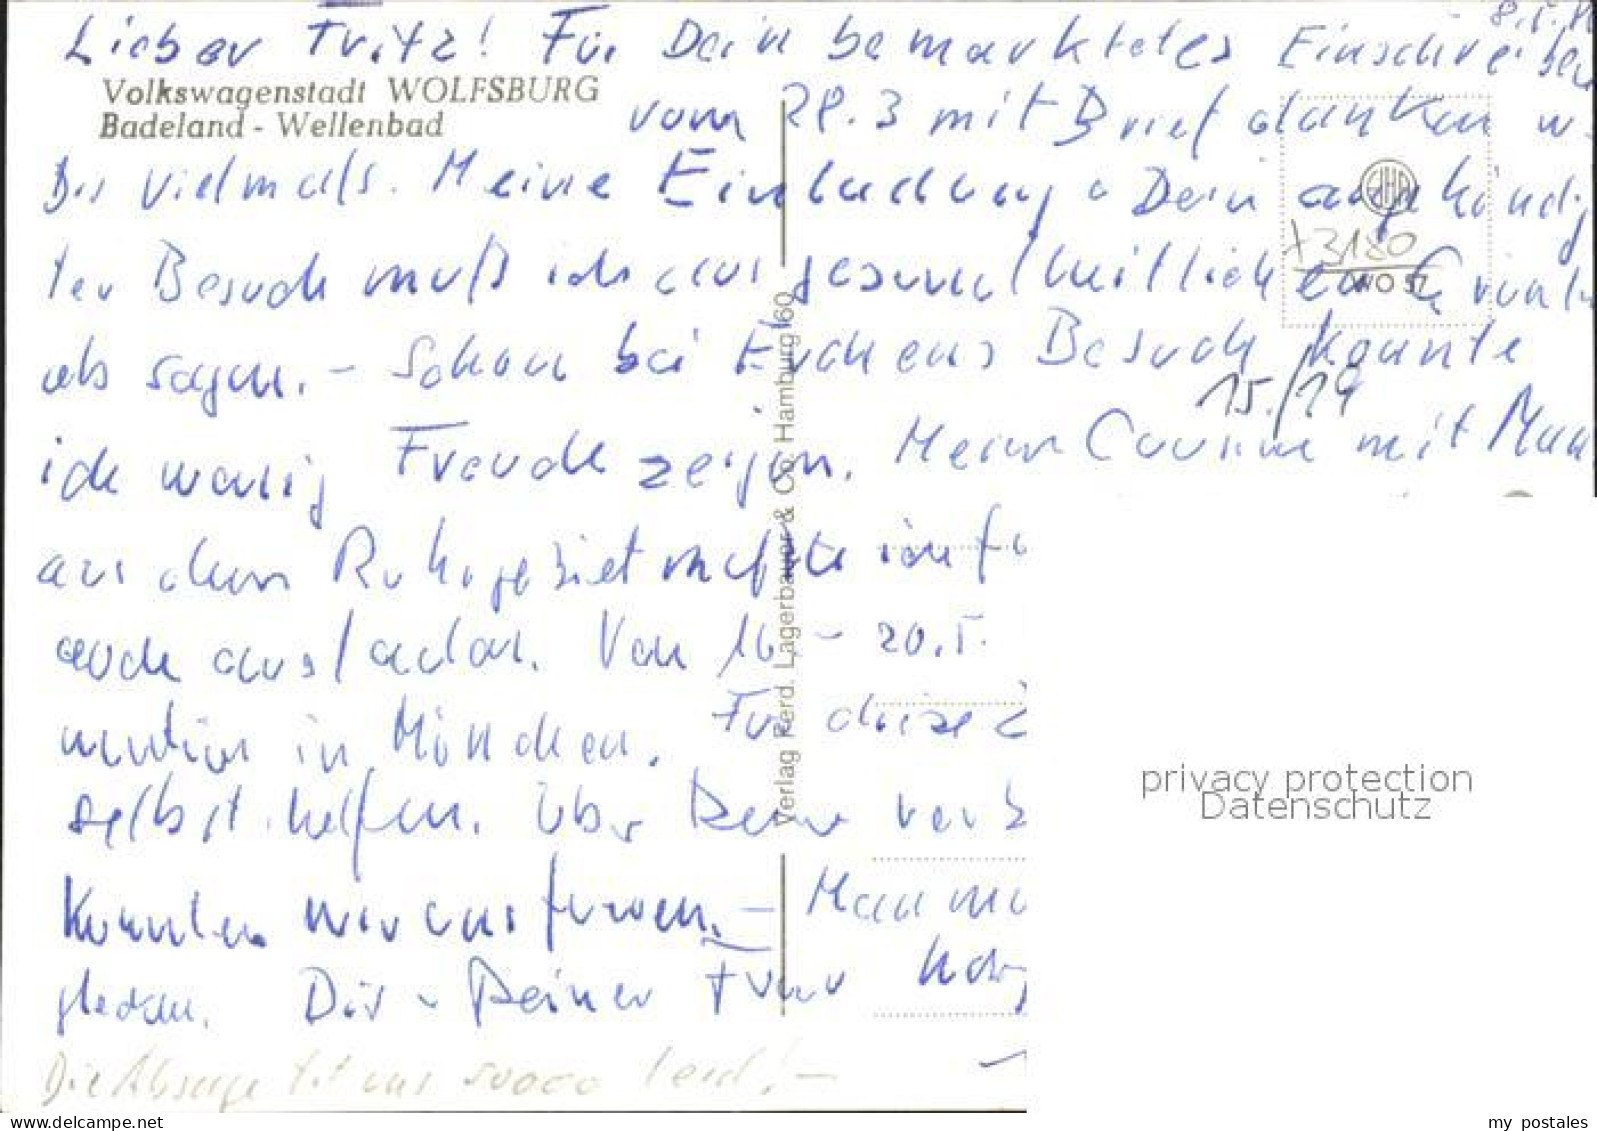 8.5.
Lieber Fritz! Für Dein bemarktetes Einschreiben
Volkswagenstadt WOLFSBURG
Badeland - Wellenbad
vom 28.3 mit Brief danken w
Dir vielmals. Meine Einladung u Dein angekündig
ten Besuch muß ich aus gesundheitlichen Gründen
absagen. - Schon bei Besuch konnte
15./19
ich wenig Freude zeigen. Meine Cousine mit Mann
aus dem Ruhrgebiet mußte ich
auch ausladen. Von 16 - 20.5.
in München. Für diese
selbst helfen. Über Deine
Konnten wir uns freuen. - Man
Dir u Deiner Frau
Die Absage tut uns soooo leid! -
EDHA
+3180
WO 57
Verlag Ferd. Lagerbauer & Co. Hamburg 60
privacy protection
Datenschutz
my postales